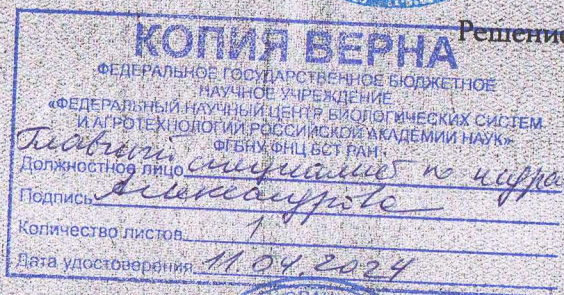 Решение
КОПИЯ ВЕРНА
ФЕДЕРАЛЬНОЕ ГОСУДАРСТВЕННОЕ БЮДЖЕТНОЕ
НАУЧНОЕ УЧРЕЖДЕНИЕ
«ФЕДЕРАЛЬНЫЙ НАУЧНЫЙ ЦЕНТР БИОЛОГИЧЕСКИХ СИСТЕМ
И АГРОТЕХНОЛОГИЙ РОССИЙСКОЙ АКАДЕМИИ НАУК»
ФГБНУ ФНЦ БСТ РАН
Должностное лицо Главный специалист по кадра
Подпись Александрова
Количество листов 1
Дата удостоверения 11.04.2024